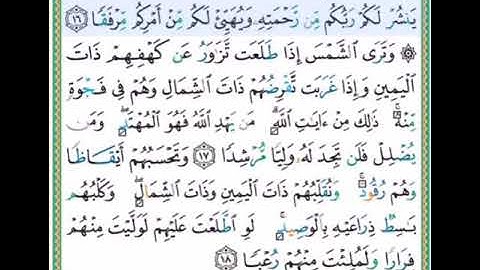 يَنشُرْ لَكُمْ رَبُّكُم مِّن رَّحْمَتِهِۦ وَيُهَيِّئْ لَكُم مِّنْ أَمْرِكُم مِّرْفَقًا ۝١٦
۞ وَتَرَى ٱلشَّمْسَ إِذَا طَلَعَت تَّزَٰوَرُ عَن كَهْفِهِمْ ذَاتَ
ٱلْيَمِينِ وَإِذَا غَرَبَت تَّقْرِضُهُمْ ذَاتَ ٱلشِّمَالِ وَهُمْ فِى فَجْوَةٍ
مِّنْهُ ۚ ذَٰلِكَ مِنْ ءَايَٰتِ ٱللَّهِ ۗ مَن يَهْدِ ٱللَّهُ فَهُوَ ٱلْمُهْتَدِ ۖ وَمَن
يُضْلِلْ فَلَن تَجِدَ لَهُۥ وَلِيًّا مُّرْشِدًا ۝١٧ وَتَحْسَبُهُمْ أَيْقَاظًا
وَهُمْ رُقُودٌ ۚ وَنُقَلِّبُهُمْ ذَاتَ ٱلْيَمِينِ وَذَاتَ ٱلشِّمَالِ ۖ وَكَلْبُهُم
بَٰسِطٌ ذِرَاعَيْهِ بِٱلْوَصِيدِ ۚ لَوِ ٱطَّلَعْتَ عَلَيْهِمْ لَوَلَّيْتَ مِنْهُمْ
فِرَارًا وَلَمُلِئْتَ مِنْهُمْ رُعْبًا ۝١٨